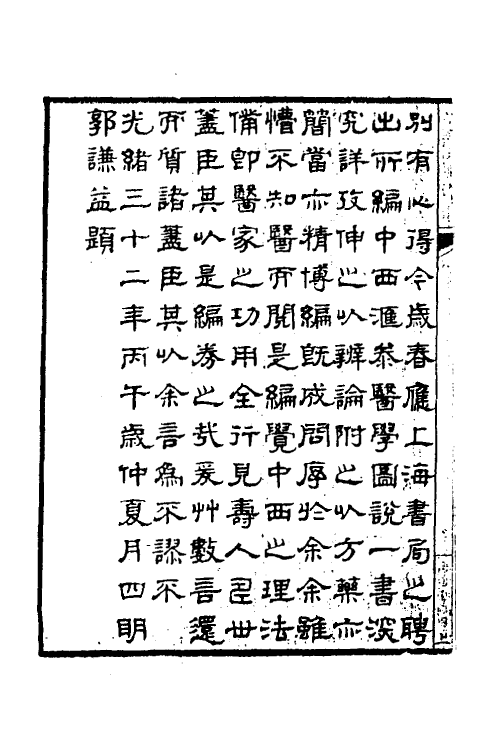 別有心得今歲春應上海書局之聘
出所編中西滙叅醫學圖說一書深
究詳攷伸之以辨論附之以方藥亦
簡當亦精博編旣成問序於余余雖
懵不知醫而閱是編覺中西之理法
備卽醫家之功用全行見壽人壽世
蓋臣其以是編券之哉爰艸數言還
而質諸藎臣其以余言為不謬不
光緒三十二年丙午歲仲夏月四明
郭謙益題